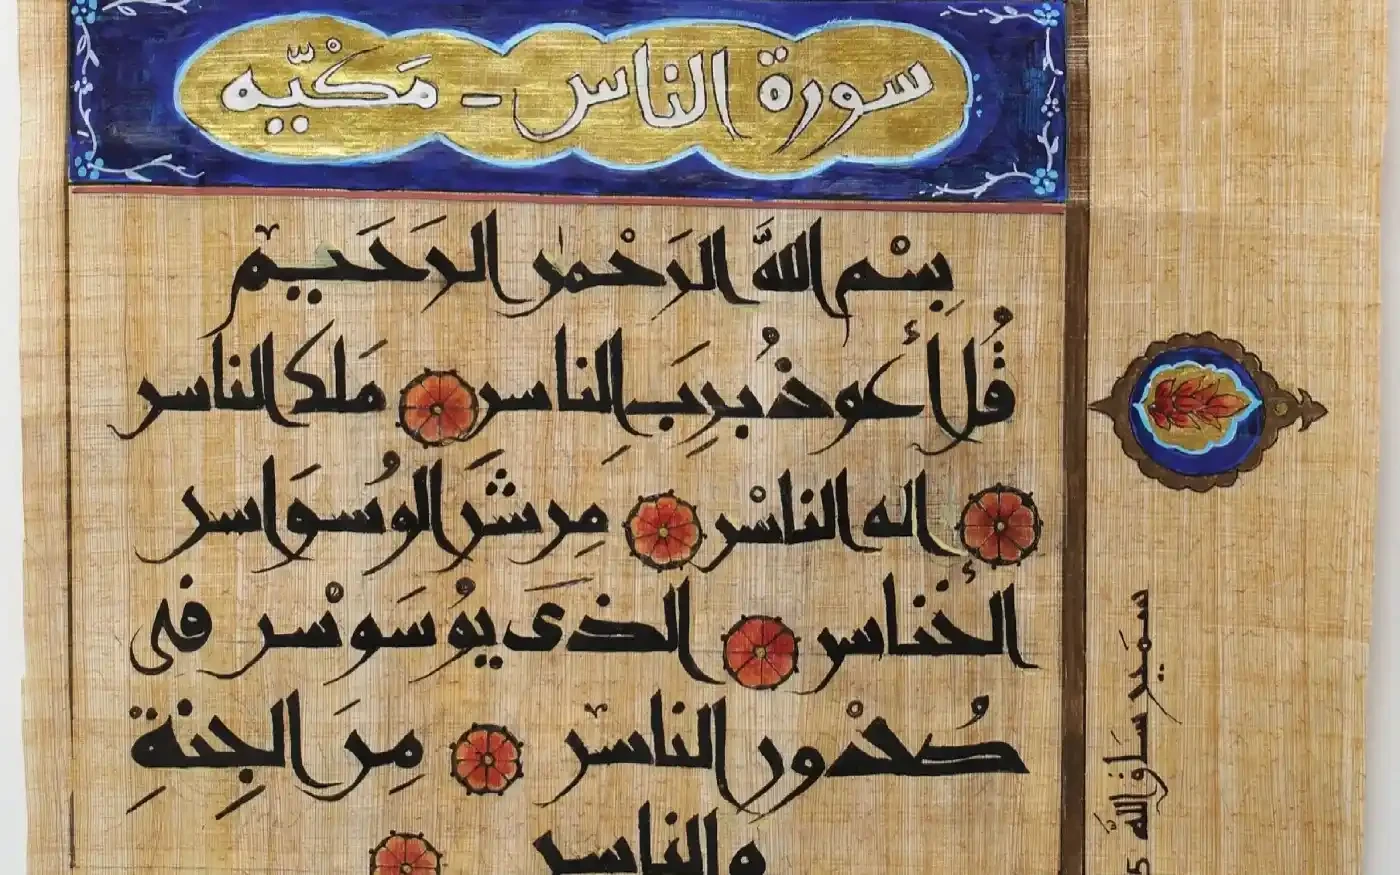 سورة الناس - مكيّه
بِسْم اللَّه الرَحْمٰن الرَحَيم
قُل أعوذُ بِرِبَ الِناس مَلك الناس
اله الناسْ مِن شَر الوُسوَاس
الخْناس الذىَ يوُسَوسْ فى
صُدْور الناسْ مِنَ الجِنةِ
والناس
سمَير ساو اللَّه